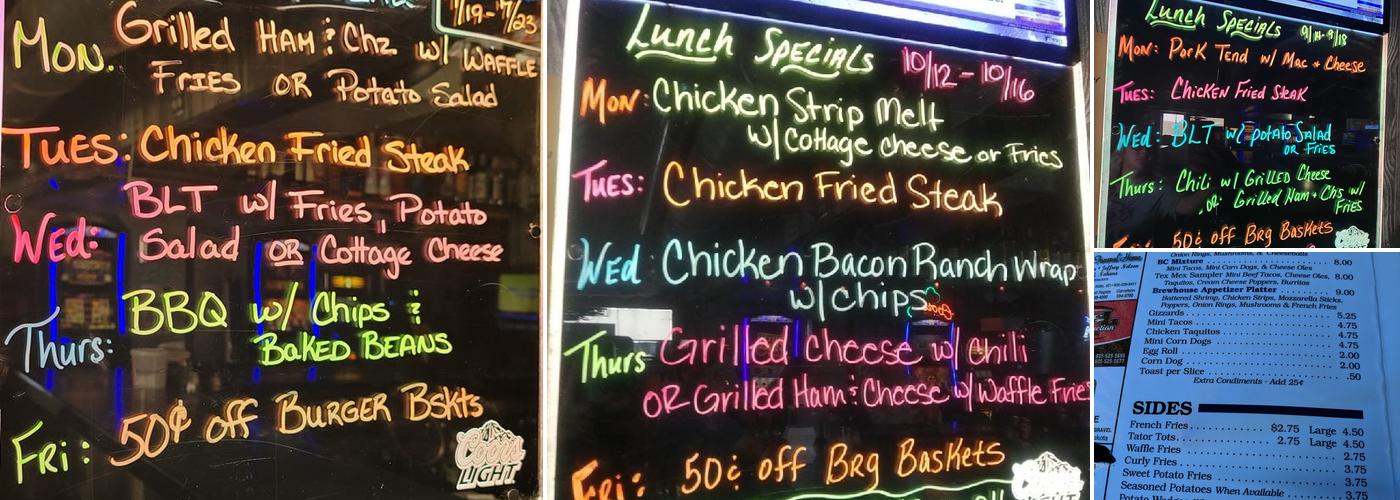 7/19-7/23
Mon. Grilled Ham & Chz w/ Waffle
Fries or Potato Salad
Tues: Chicken Fried Steak
BLT w/ Fries, Potato
Wed: Salad or Cottage Cheese
BBQ w/ Chips &
Thurs: Baked Beans
Fri: 50¢ off Burger Bskts
Coors
LIGHT
Lunch Specials
10/12 - 10/16
Mon: Chicken Strip Melt
w/ Cottage cheese or Fries
Tues: Chicken Fried Steak
Wed Chicken Bacon Ranch Wrap
w/ chips
Thurs Grilled cheese w/ chili
OR Grilled Ham & Cheese w/ Waffle Fries
Fri: 50¢ off Brg Baskets
Coors
Lunch Specials
Mon: Pork Tend w/ Mac & Cheese
Tues: Chicken Fried Steak
Wed: BLT w/ potato Salad
or Fries
Thurs: Chili w/ Grilled Cheese
-or- Grilled Ham & Chs w/
Fries
Fri: 50¢ off Brg Baskets
Onion Rings, Mushrooms, & Cheeseballs
BC Mixture 8.00
Mini Tacos, Mini Corn Dogs, & Cheese Oles,
Tex Mex Sampler Mini Beef Tacos, Cheese Oles, 8.00
Taquitos, Cream Cheese Poppers, Burritos
Brewhouse Appetizer Platter 9.00
Battered Shrimp, Chicken Strips, Mozzarella Sticks,
Poppers, Onion Rings, Mushrooms & French Fries
Gizzards 5.25
Mini Tacos 4.75
Chicken Taquitos 4.75
Mini Corn Dogs 4.75
Egg Roll 2.00
Corn Dog 2.00
Toast per Slice .50
Extra Condiments - Add 25¢
SIDES
French Fries $2.75 Large 4.50
Tator Tots 2.75 Large 4.50
Waffle Fries 2.75
Curly Fries 3.75
Sweet Potato Fries 3.75
Seasoned Potatoes When Available 3.75